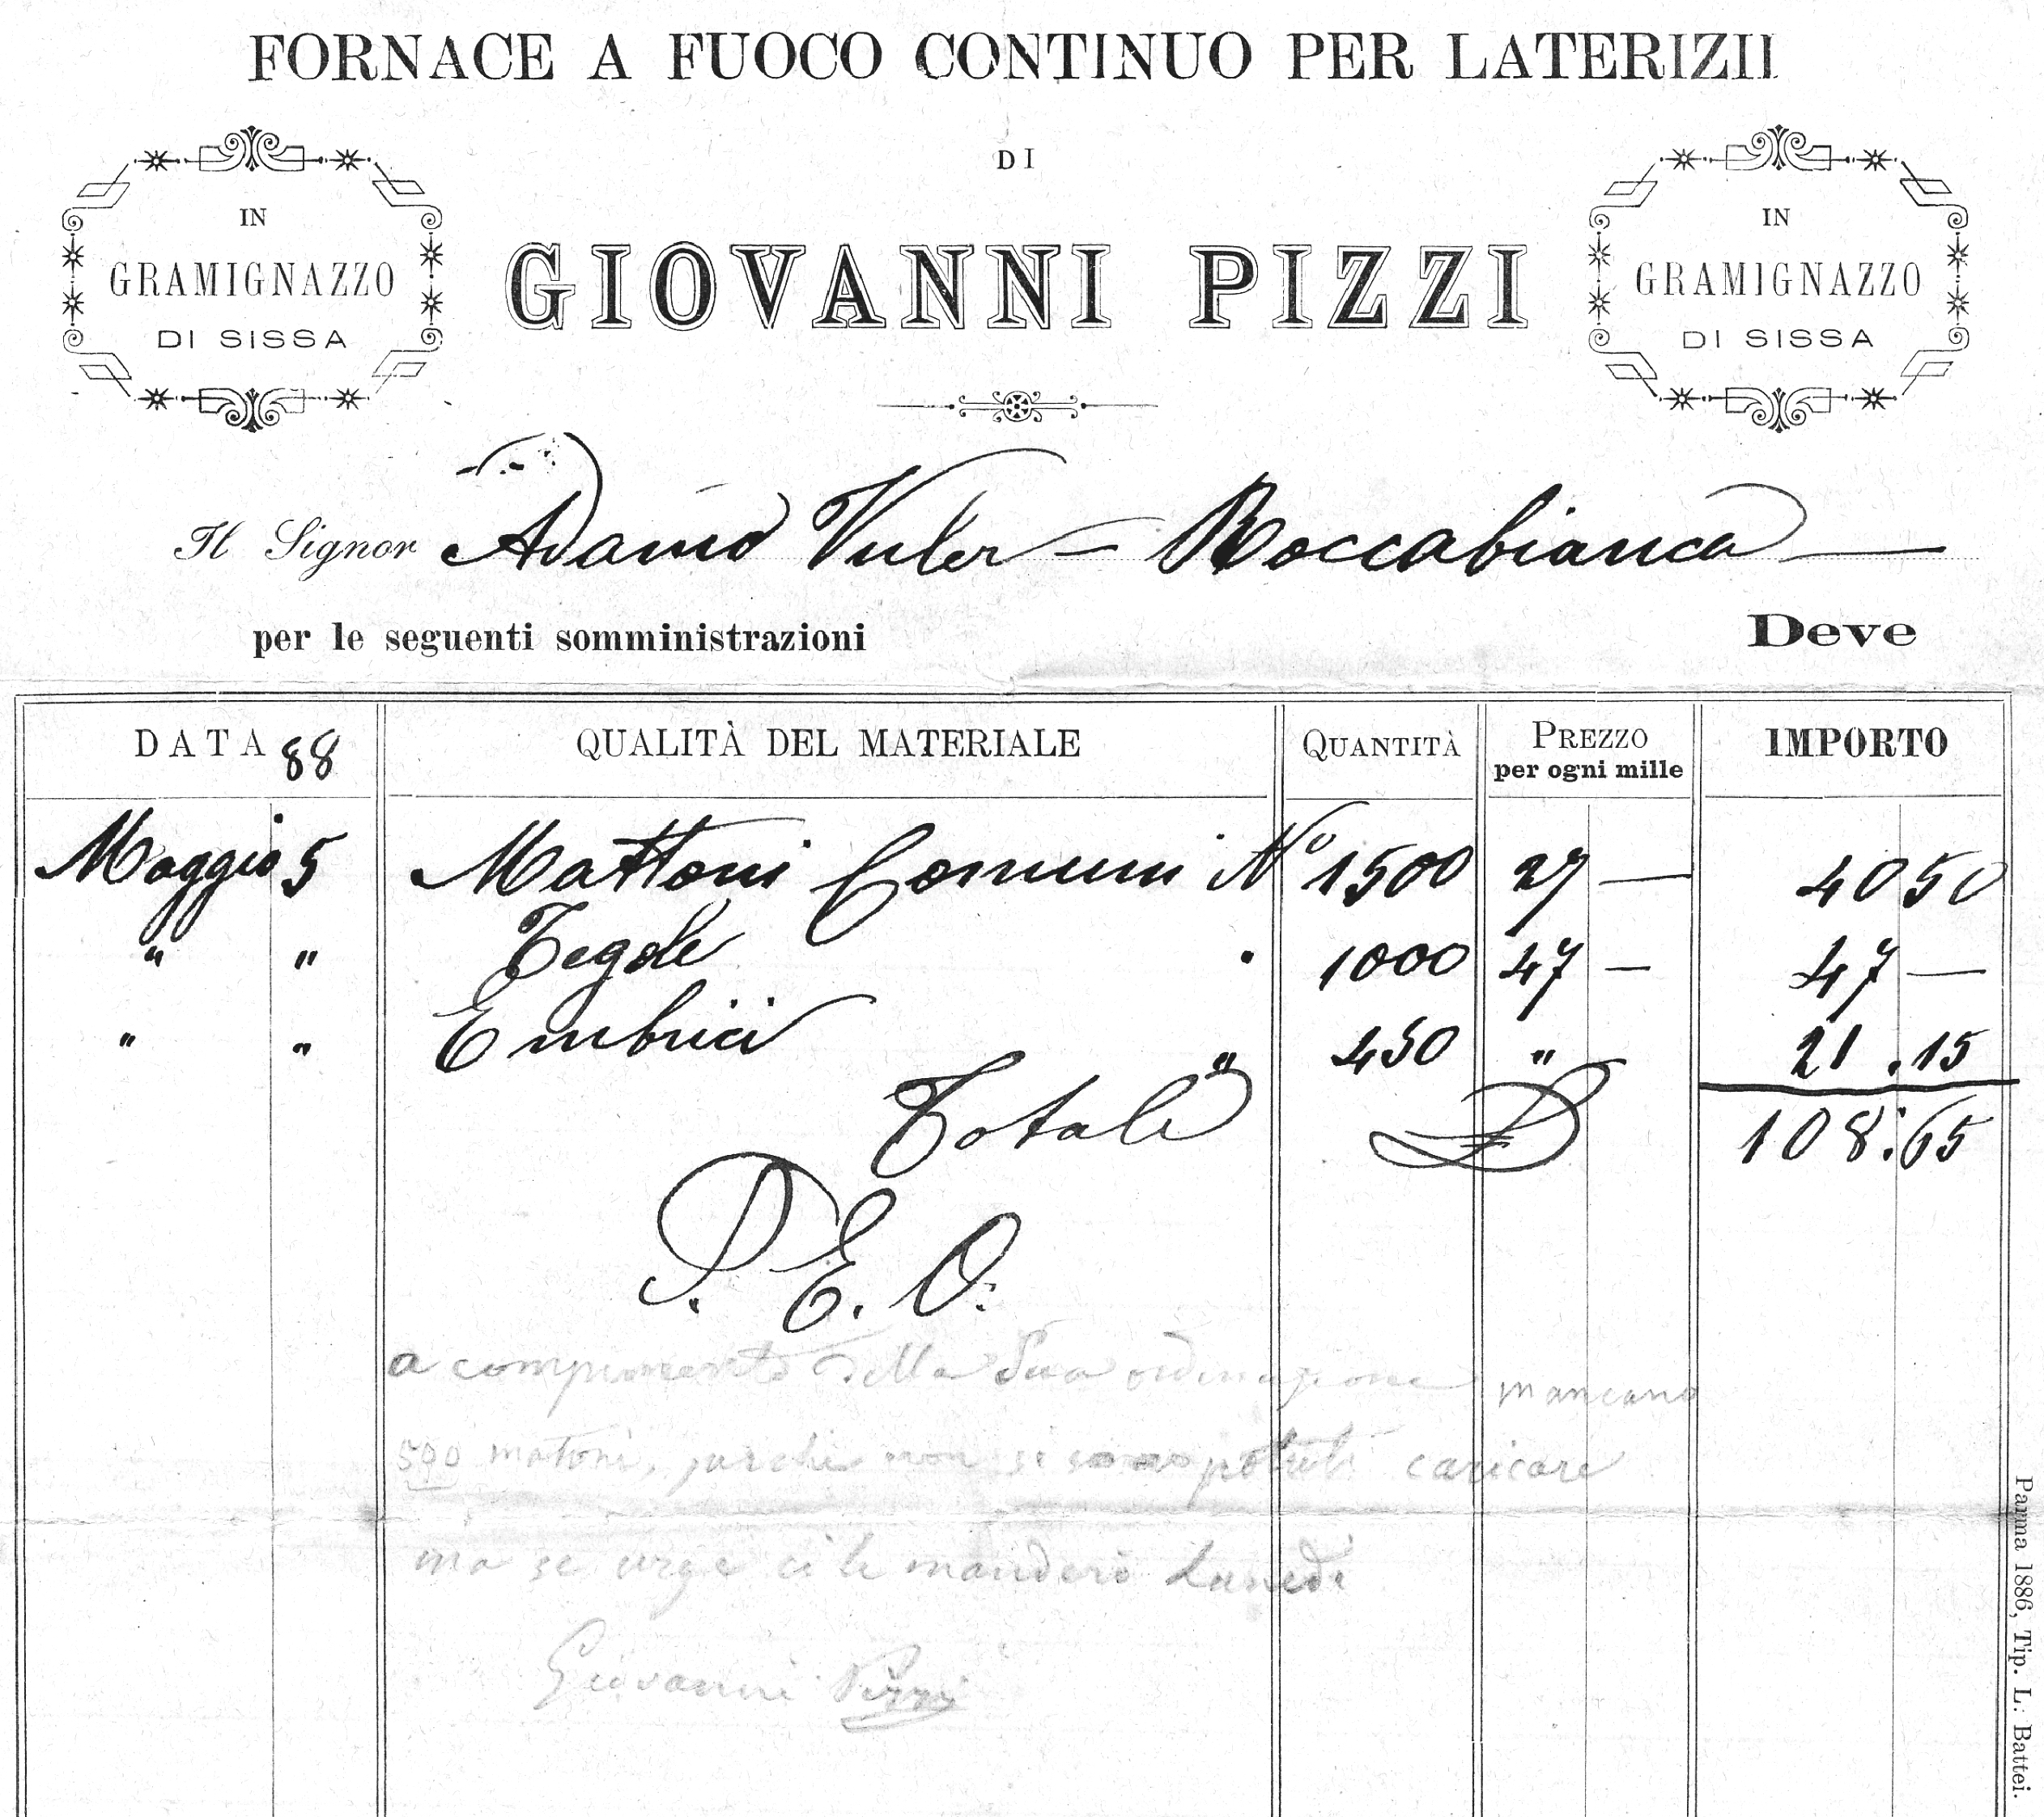 FORNACE A FUOCO CONTINUO PER LATERIZII
DI
IN
GRAMIGNAZZO
DI SISSA
GIOVANNI PIZZI
IN
GRAMIGNAZZO
DI SISSA
Il Signor Adamo Vuler – Roccabianca —
per le seguenti somministrazioni Deve
DATA 88 QUALITÀ DEL MATERIALE QUANTITÀ PREZZO per ogni mille IMPORTO
Maggio 5 Mattoni Comuni N° 1500 27 — 40 50
" " Tegole " 1000 47 — 47 —
" " Embrici " 450 " 21.15
Totale 108:65
P. E. O.
a compimento della Sua ordinazione mancano
500 matoni, parchè non si sono potuti caricare
ma se urge ci le manderò Lunedì
Giovanni Pizzi
Parma 1886, Tip. L. Battei.